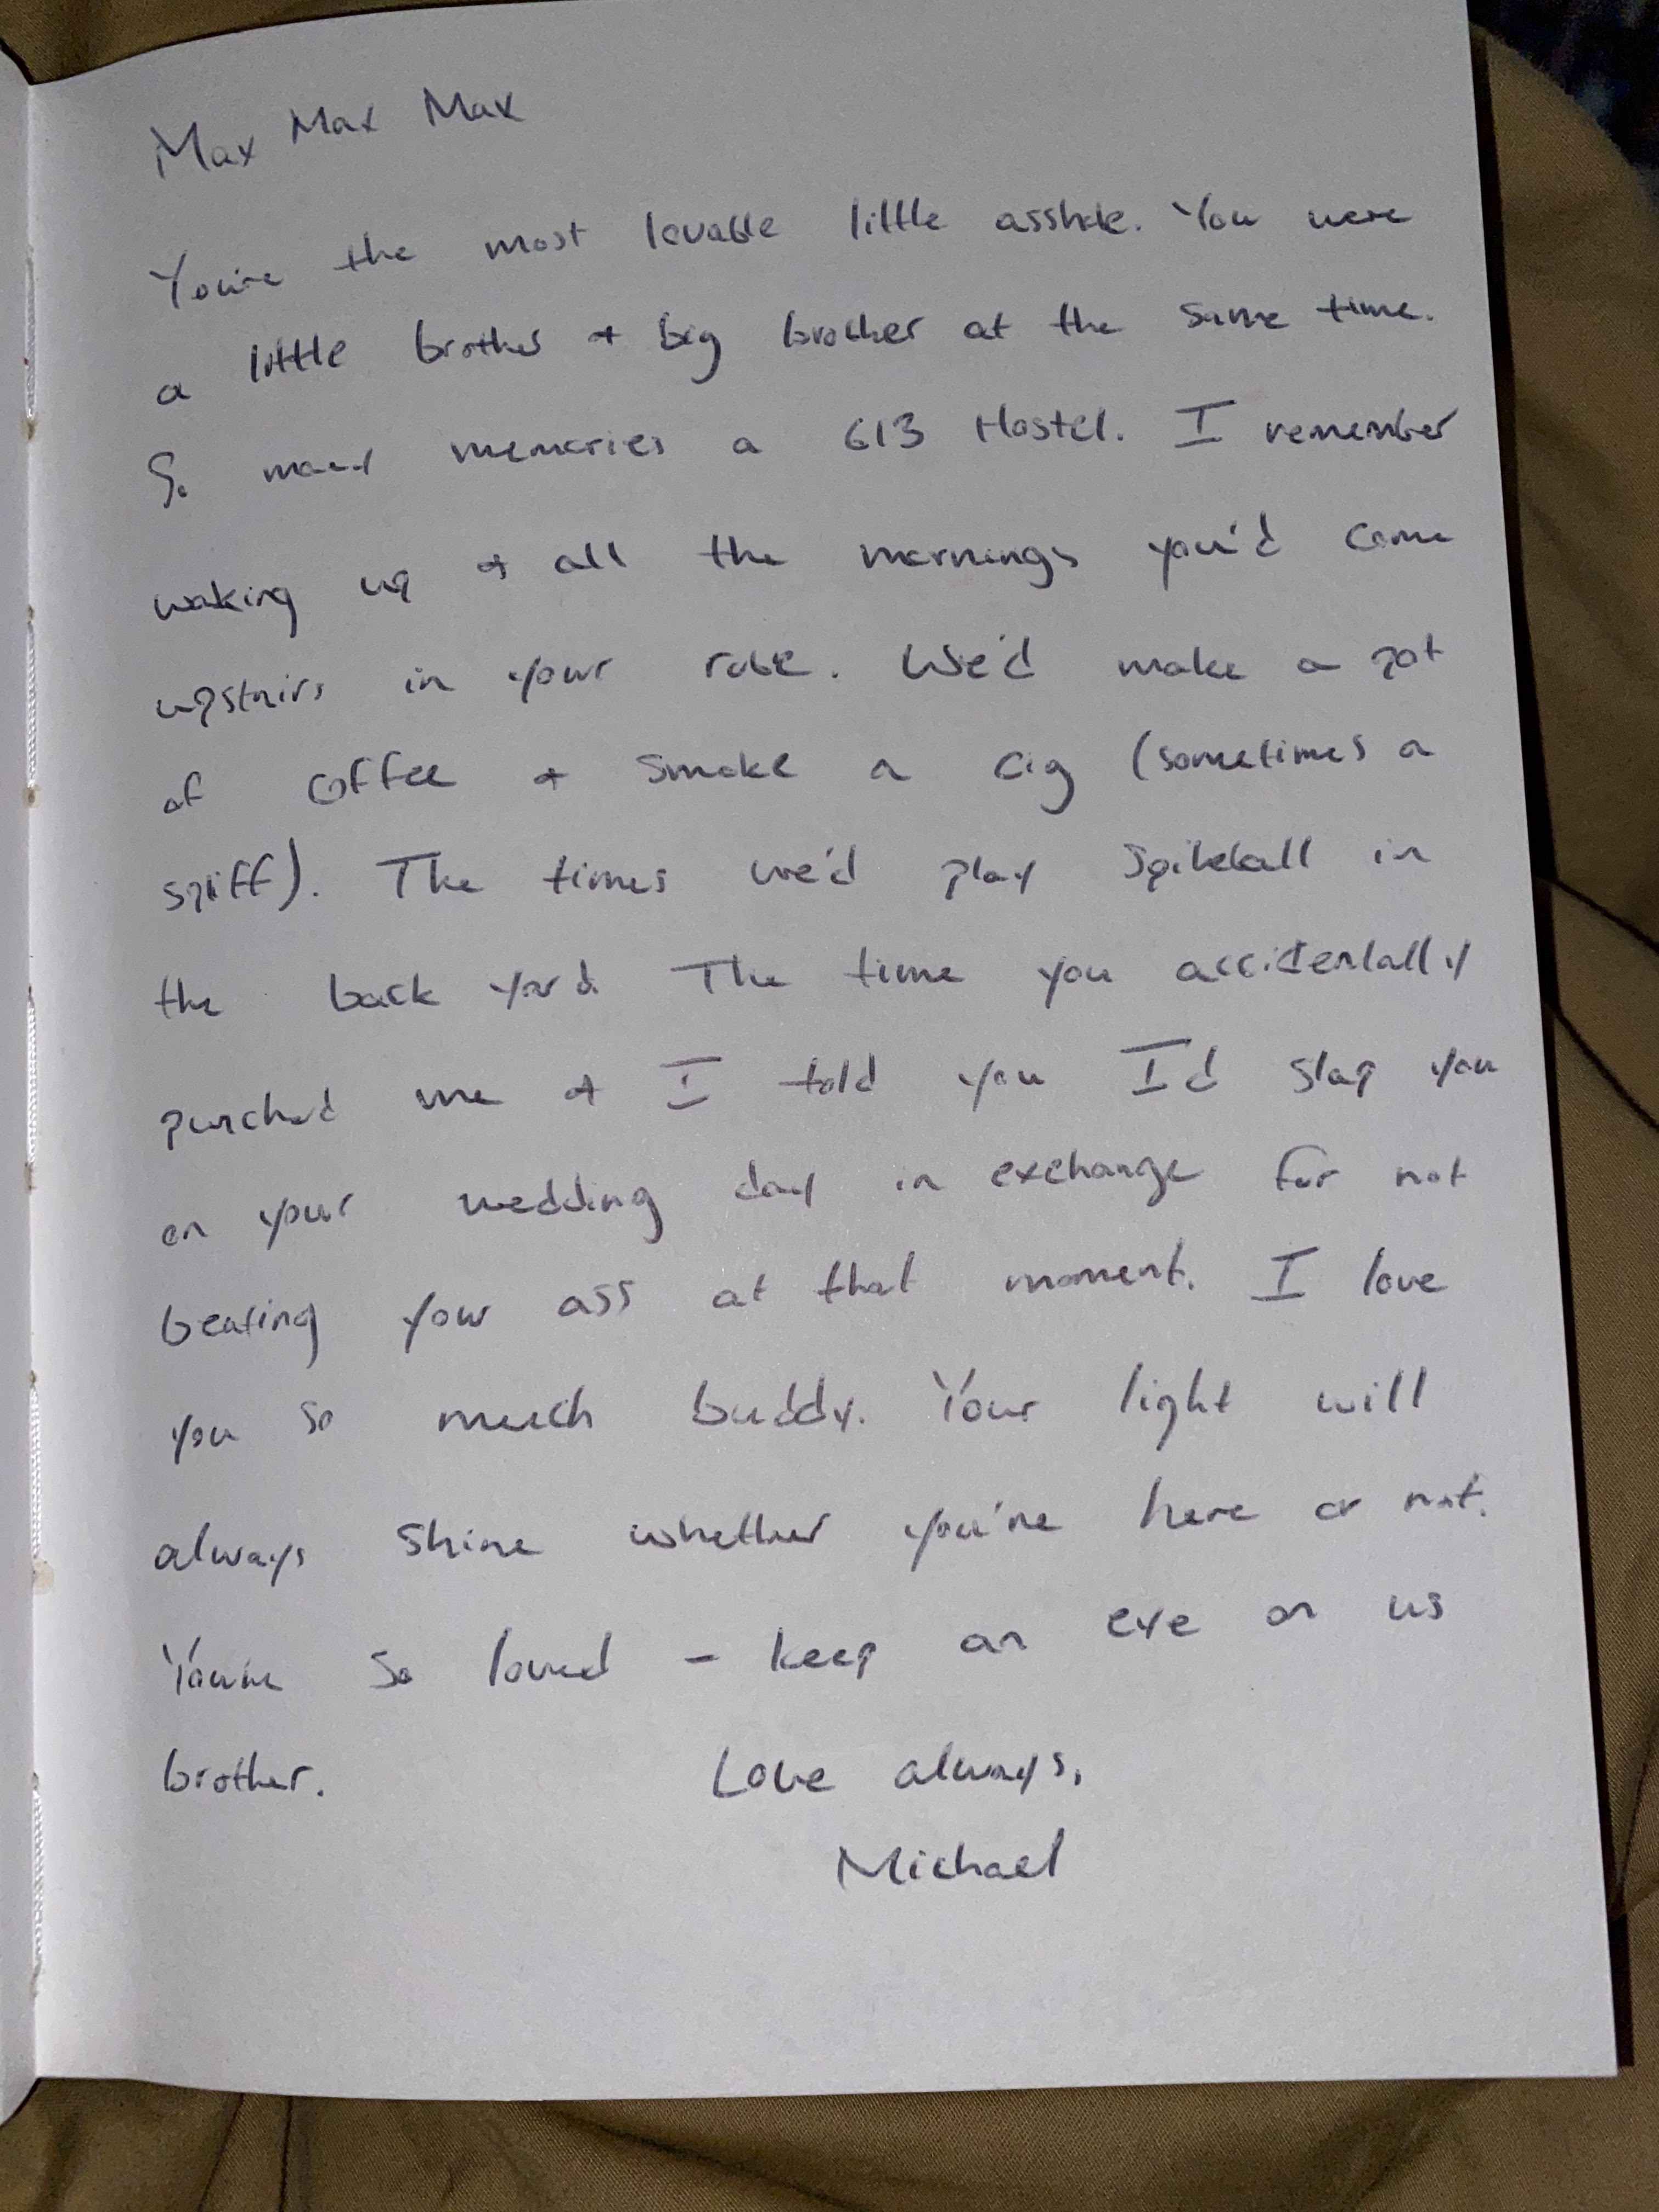 Max Max Max
You're the most lovable little asshole. You were
a little brother + big brother at the same time.
So many memories a 613 Hostel. I remember
waking up + all the mornings you'd come
upstairs in your robe. We'd make a pot
of coffee + smoke a cig (sometimes a
spliff). The times we'd play Spikeball in
the back yard. The time you accidentally
punched me + I told you I'd slap you
on your wedding day in exchange for not
beating your ass at that moment. I love
you so much buddy. Your light will
always shine whether you're here or not.
You're so loved - keep an eye on us
brother. Love always,
Michael